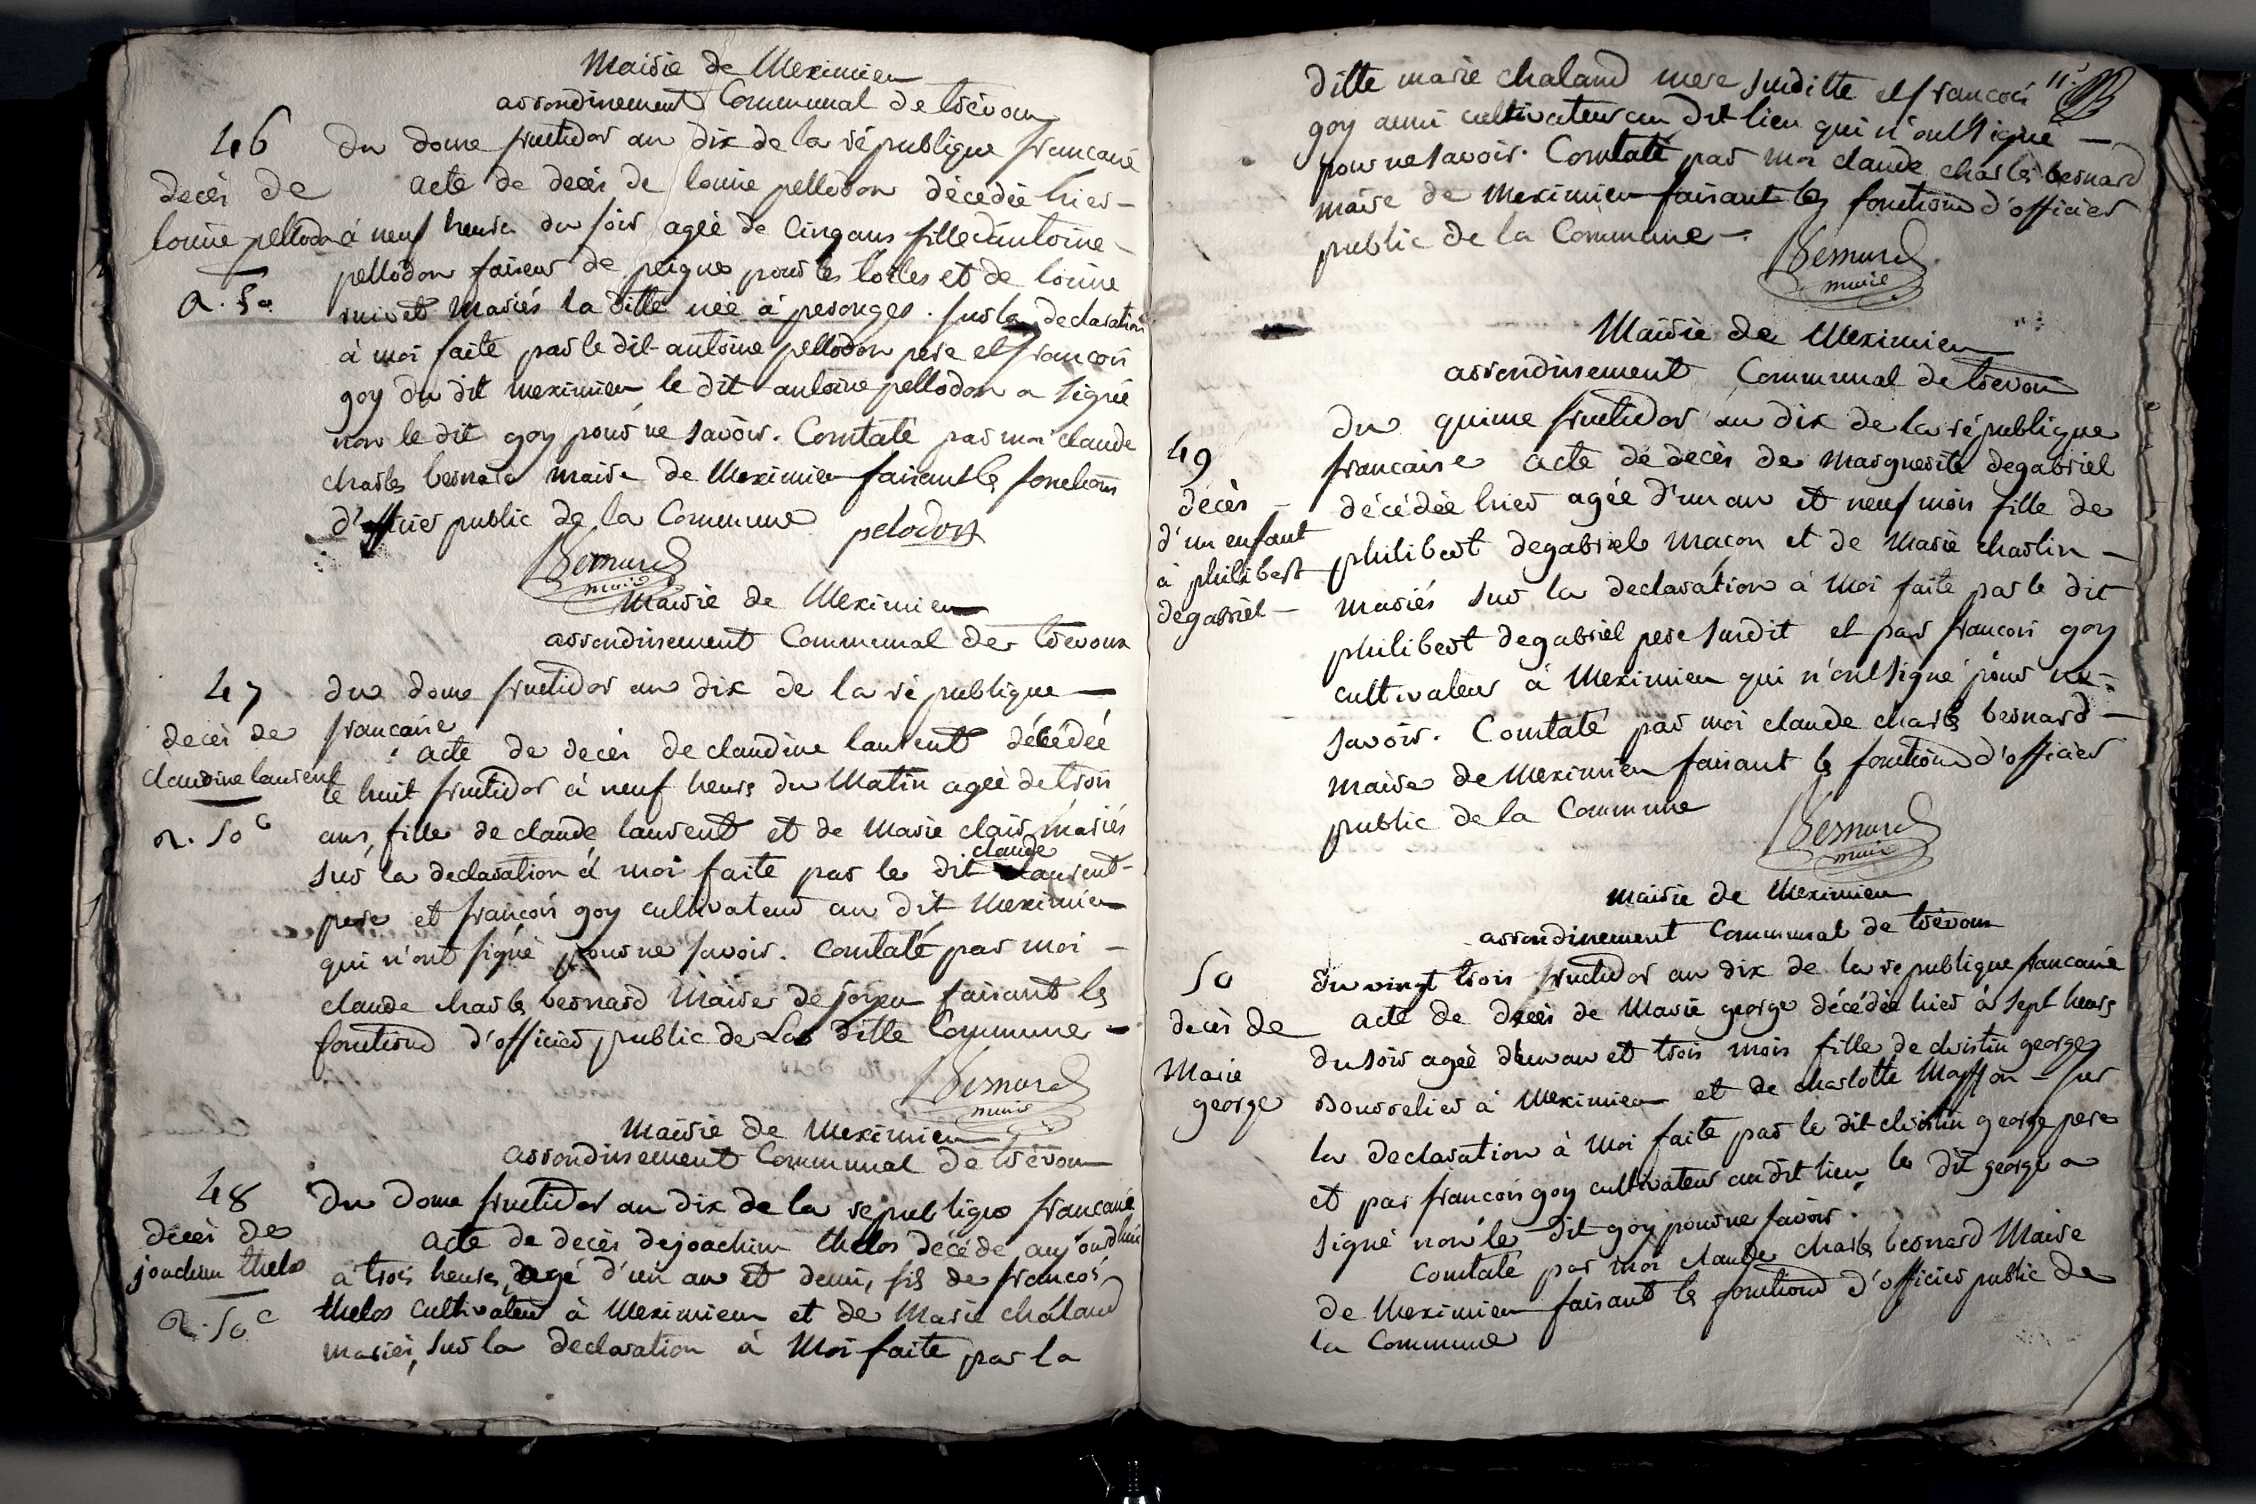 Mairie de Meximieu
arrondissement Communal de trévoux
46
du douze fructidor an dix de la république francaise
decès de
louise pellodon
a. 50
acte de decès de louise pellodon décédée hier
à neuf heures du soir agée de Cinq ans fille d'antoine
pellodon faiseur de peignes pour les toiles et de louise
mariés la ditte née à perouges. sur la declaration
à moi faite par le dit antoine pellodon pere et francois
goy du dit meximieu le dit antoine pellodon a signé
non le dit goy pour ne savoir. Constaté par moi claude
charles bernard maire de Meximieu faisant les fonctions
d'officier public de la Commune pelodon
Bernard
maire
Mairie de Meximieu
arrondissement Communal de trevoux
47
decès de
claudine laurent
a. 50 c
du douze fructidor an dix de la république
francaise
acte de decès de claudine laurent décédée
le huit fructidor à neuf heures du Matin agée de trois
ans, fille de claude laurent et de Marie clair mariés
sur la declaration à moi faite par le dit claude laurent
pere et francois goy cultivateur au dit Meximieu
qui n'ont signé pour ne savoir. constaté par moi
claude charles bernard Maire de faisant les
fonctions d'officier public de La ditte Commune
Bernard
maire
Mairie de Meximieu
arrondissement Communal de trévoux
48
decès de
joachim thelos
a. 50 c
du douze fructidor an dix de la republique francaise
acte de decès de joachim thelos décédé aujourdhui
à trois heures, agé d'un an et demi, fils de francois
thelos cultivateur à Meximieu et de Marie chaland
mariés, sur la declaration à Moi faite par la
ditte marie chaland mere susditte et francois
goy aussi cultivateur au dit lieu qui n'ont signé
pour ne savoir. Constaté par moi claude charles bernard
maire de Meximieu faisant les fonctions d'officier
public de la Commune
Bernard
maire
Mairie de Meximieu
arrondissement Communal de trevoux
49
decès
d'un enfant
à philibert
degabriel
du quinze fructidor an dix de la république
francaise acte de decès de Marguerite degabriel
décédée hier agée d'un an et neuf mois fille de
philibert degabriel Maçon et de Marie charlin
mariés sur la declaration à Moi faite par le dit
philibert degabriel pere susdit et par francois goy
cultivateur à Meximieu qui n'ont signé pour ne
savoir. Constaté par moi claude charles bernard
maire de Meximieu faisant les fonctions d'officier
public de la Commune
Bernard
maire
Mairie de Meximieu
arrondissement Communal de trévoux
50
decès de
Marie
george
du vingt trois fructidor an dix de la republique francaise
acte de decès de Marie george décédée hier à sept heures
du soir agée d'un an et trois mois fille de christin george
bourrelier à Meximieu et de charlotte Masson sur
la declaration à Moi faite par le dit christin george pere
et par francois goy cultivateur au dit lieu, le dit george a
signé non le dit goy pour ne savoir.
Constaté par moi claude charles bernard Maire
de Meximieu faisant les fonctions d'officier public de
la Commune